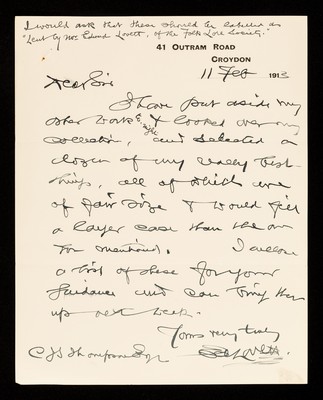 I would ask that these should be labelled as
"Lent by Mr. Edward Lovett, of the Folk Lore Society."
41 OUTRAM ROAD
CROYDON
11 Feb 1913
Dear Sir
I have put aside my
other work & looked over my
collection, and selected a
dozen of my really best
things, all of which are
of fair size & would fill
a larger case than the one
you mentioned. I enclose
a list of these for your
guidance and can bring them
up next week.
Yours very truly
E Lovett.
C J S Thompson Esq